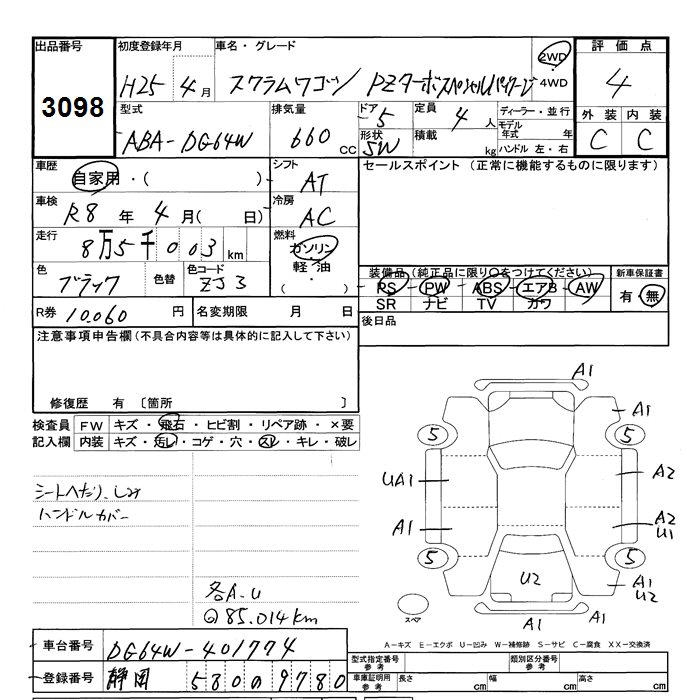 出品番号 初度登録年月 車名・グレード 評価点
3098 H25 4月 スクラムワゴン PZターボスペシャルパッケージ 2WD 4WD 4
型式 排気量 ドア 定員 ディーラー・並行 外装 内装
ABA-DG64W 660 CC 5 4人 モデル年式 年 C C
形状 積載 kg ハンドル 左・右
SW
車歴 自家用・( ) シフト AT セールスポイント (正常に機能するものに限ります)
車検 R8年 4月( 日) 冷房 AC
走行 8万5千003km 燃料 ガソリン
軽・油
・
( )
色 ブラック 色替 色コード ZJ3
装備品(純正品に限り○をつけてください) 新車保証書
PS PW ABS エアB AW 有・無
SR ナビ TV カワ
R券 10,060円 名変期限 月 日 後日品
注意事項申告欄(不具合内容等は具体的に記入して下さい)
修復歴 有 〔箇所 〕
検査員 FW キズ・飛石・ヒビ割・リペア跡・×要
記入欄 内装 キズ・汚レ・コゲ・穴・スレ・キレ・破レ
シートへたり、しみ
ハンドルカバー
各A.U
◎85.014km
A1
A1
5 5
UA1 A2
A1 A2
U1
5 5
U2 A1
U4
スペア A1 A1
A-キズ E-エクボ U-凹み W-補修跡 S-サビ C-腐食 XX-交換済
車台番号 DG64W-401774 型式指定番号 参考 類別区分番号 参考
登録番号 静岡 580の9780 車庫証明用 参考 長さ cm 幅 cm 高さ cm